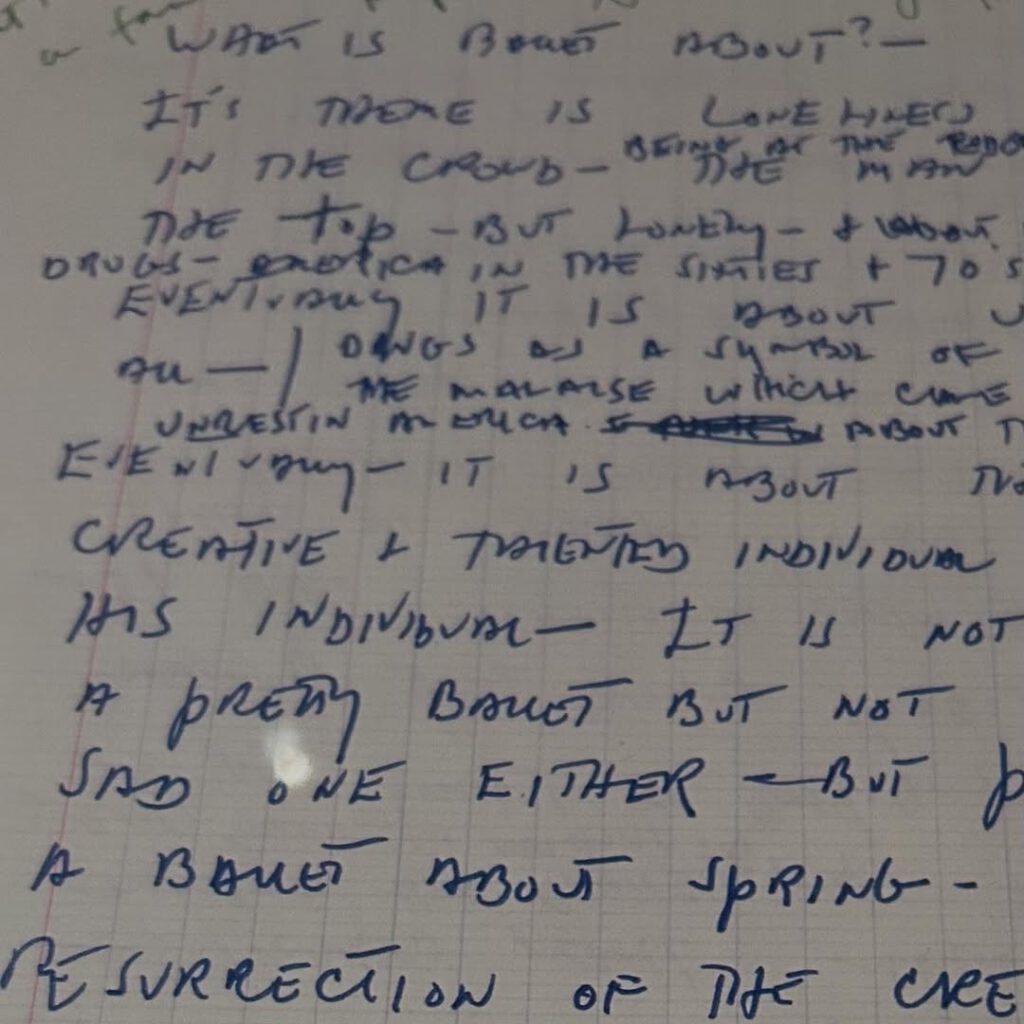 WHAT IS BALLET ABOUT? —
IT'S THEME IS LONELINESS
BEING AT THE
IN THE CROWD — THE MAN
THE TOP — BUT LONELY — + ABOUT
DRUGS — EROTICA IN THE SIXTIES + 70'S
EVENTUALLY IT IS ABOUT
ALL — DRUGS AS A SYMBOL OF
THE MALAISE WHICH CAME
UNREST IN AMERICA ABOUT
EVENTUALLY — IT IS ABOUT
CREATIVE & TALENTED INDIVIDUAL
HIS INDIVIDUAL — IT IS NOT
A PRETTY BALLET BUT NOT
SAD ONE EITHER — BUT
A BALLET ABOUT SPRING -
RESURRECTION OF THE CRE